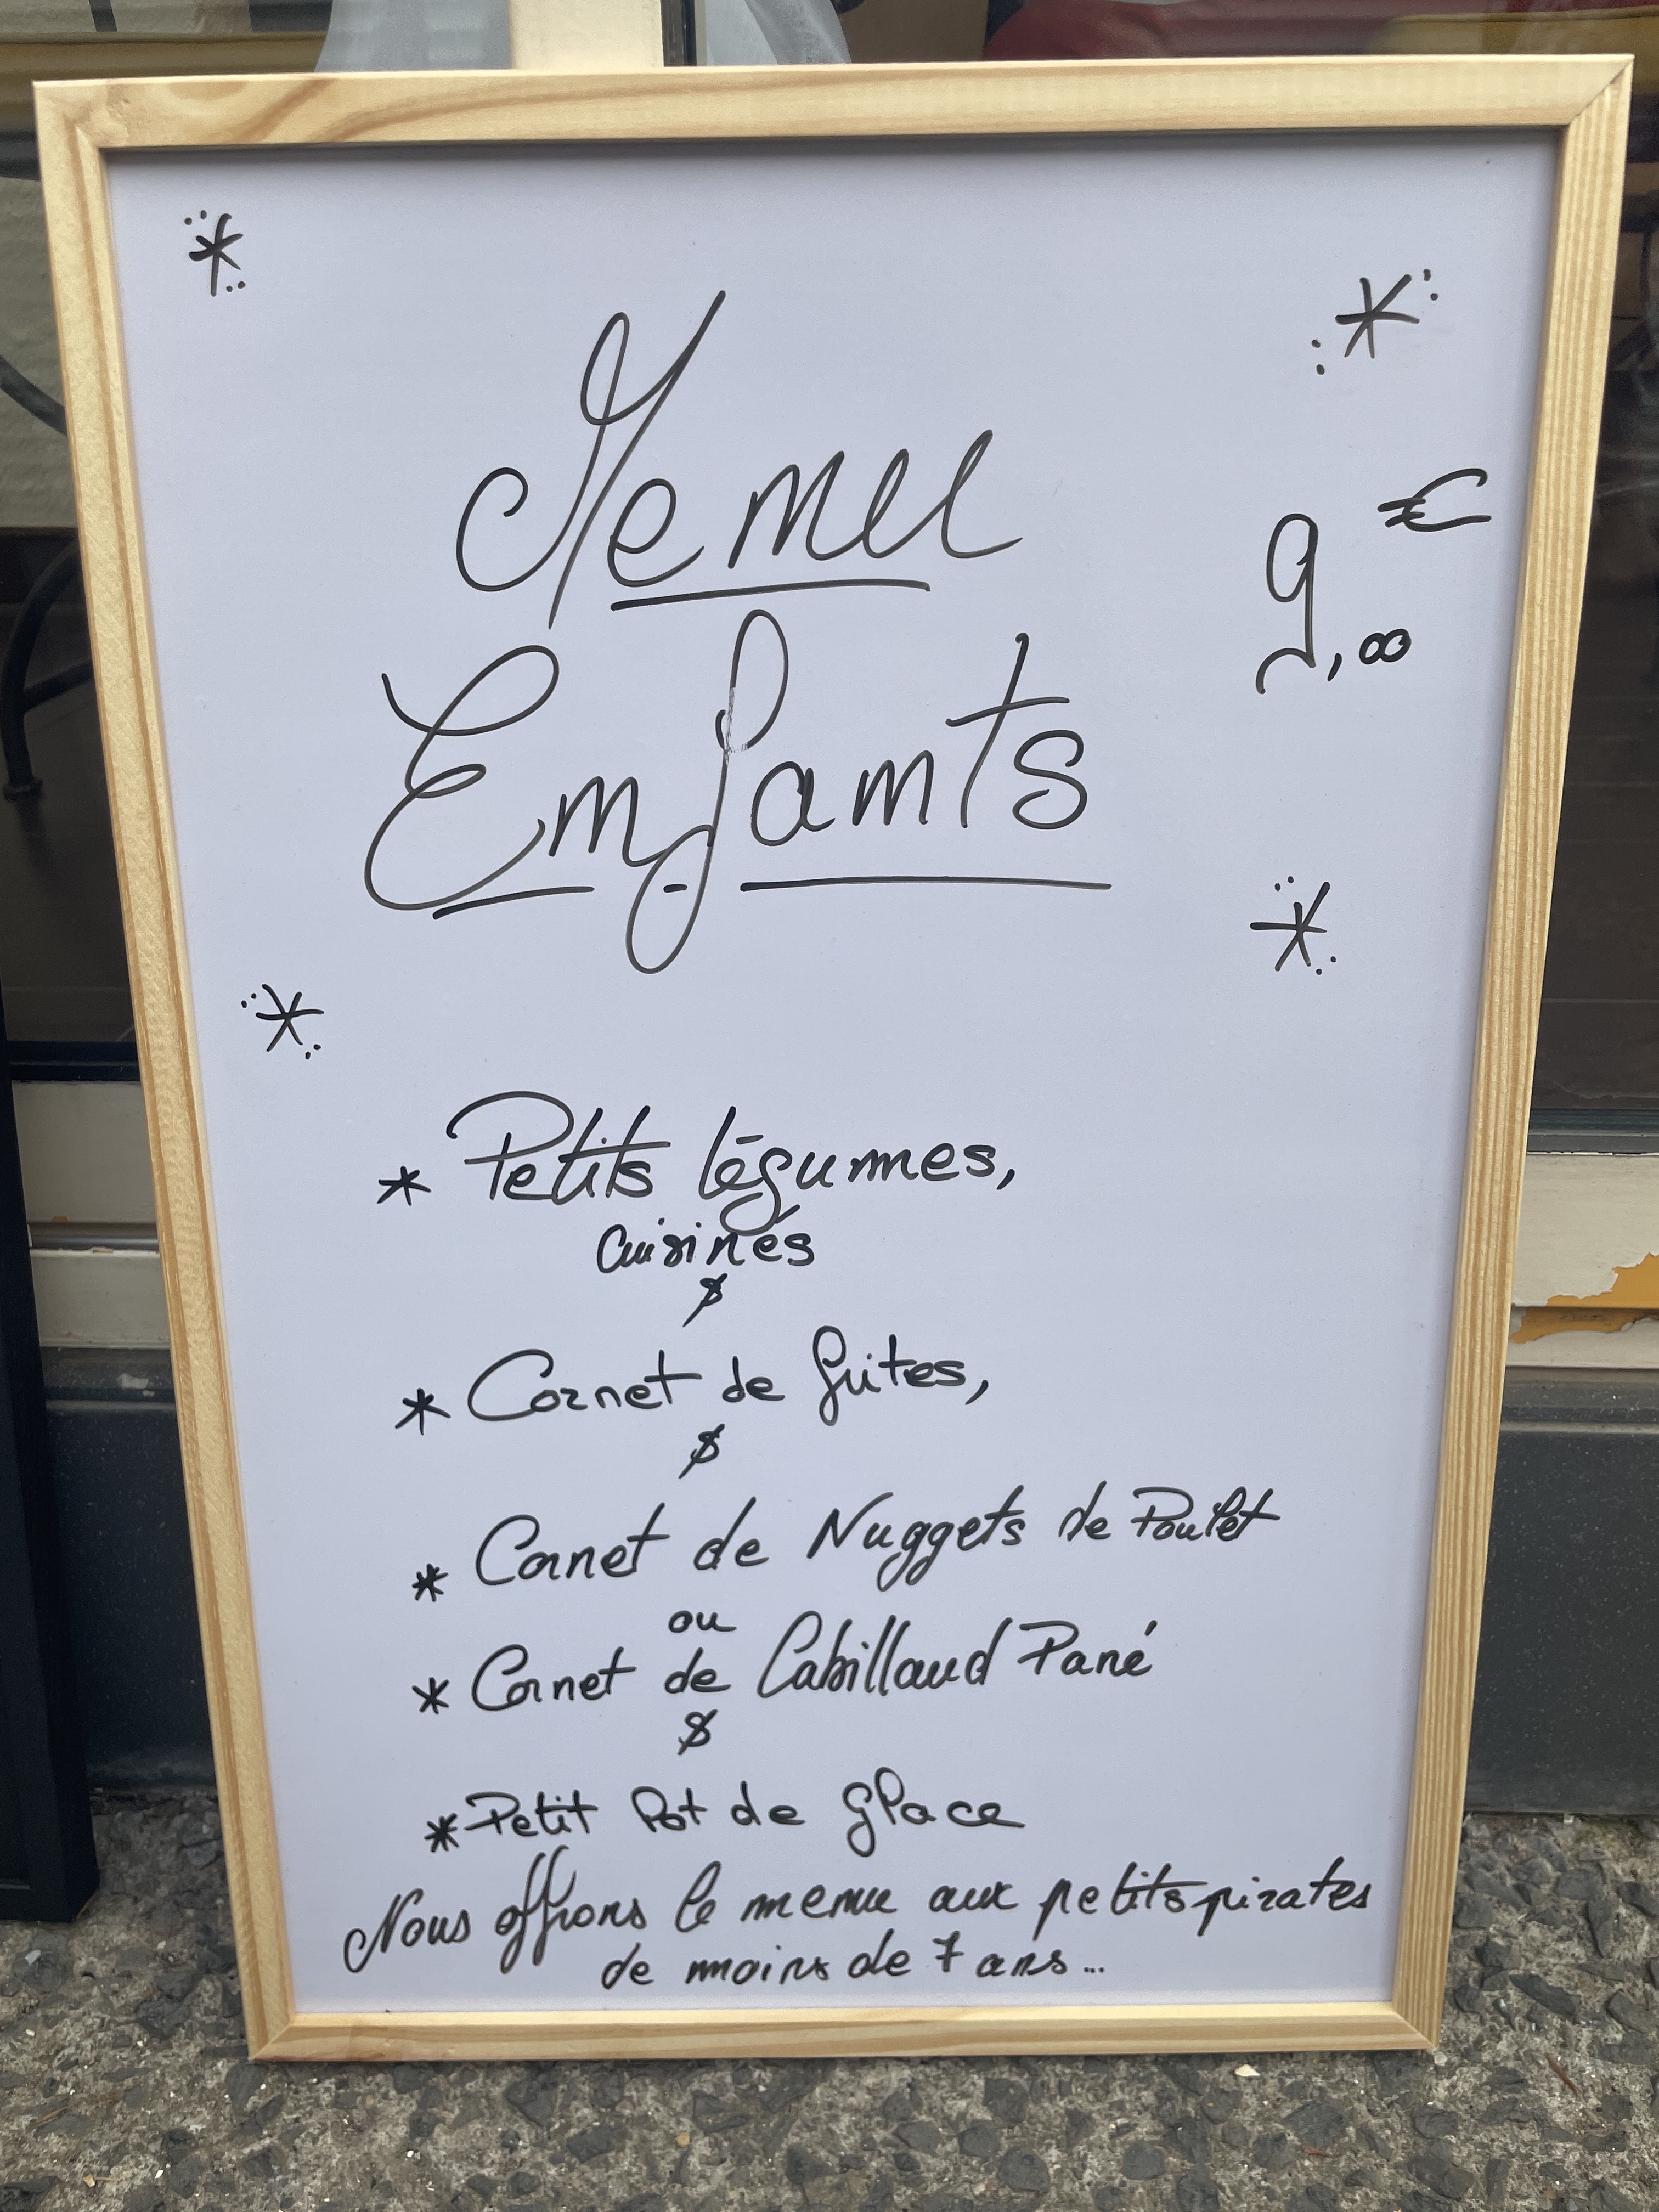 Menu
9,00 €
Enfants
* Petits légumes,
cuisinés
&
* Cornet de frites,
&
* Cornet de Nuggets de Poulet
ou
* Cornet de Cabillaud Pané
&
* Petit Pot de glace
Nous offrons le menu aux petits pirates
de moins de 7 ans...